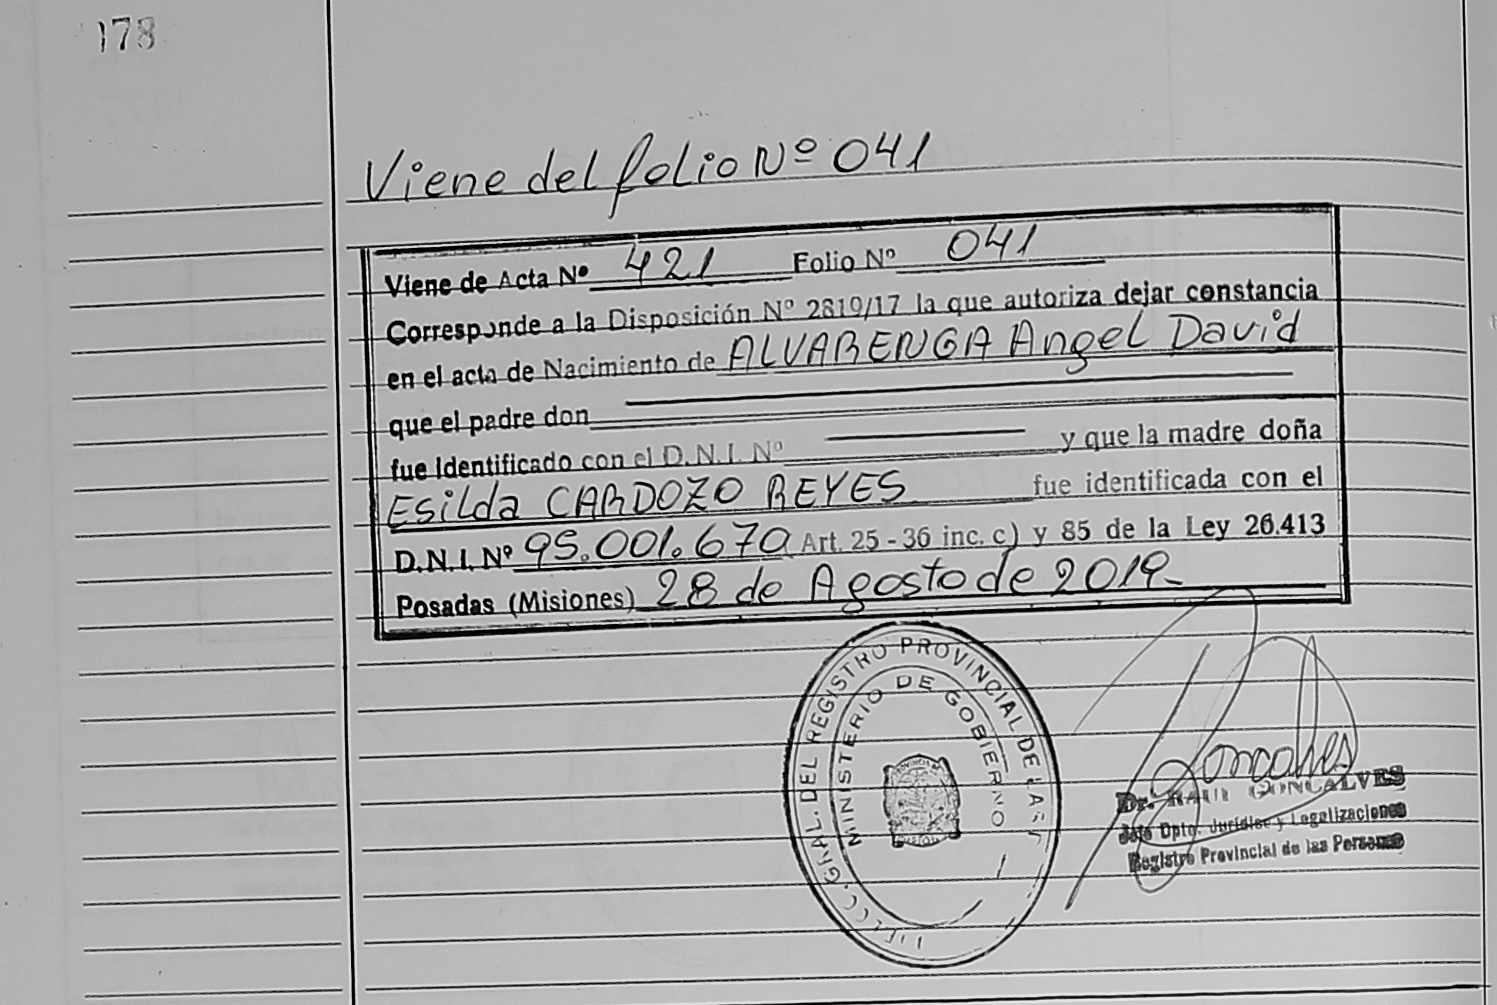 178
Viene del folio Nº 041
Viene de Acta Nº 421 Folio Nº 041
Corresponde a la Disposición Nº 2819/17 la que autoriza dejar constancia
en el acta de Nacimiento de ALVARENGA Angel David
que el padre don
fue Identificado con el D.N.I. Nº y que la madre doña
Esilda CARDOZO REYES fue identificada con el
D.N.I. Nº 95.001.670 Art. 25 - 36 inc. c) y 85 de la Ley 26.413
Posadas (Misiones) 28 de Agosto de 2019-
GRAL. DEL REGISTRO PROVINCIAL DE LAS
MINISTERIO DE GOBIERNO
Goncalves
Dr. RAUL GONCALVES
Jefe Dpto. Jurídico y Legalizaciones
Registro Provincial de las Personas